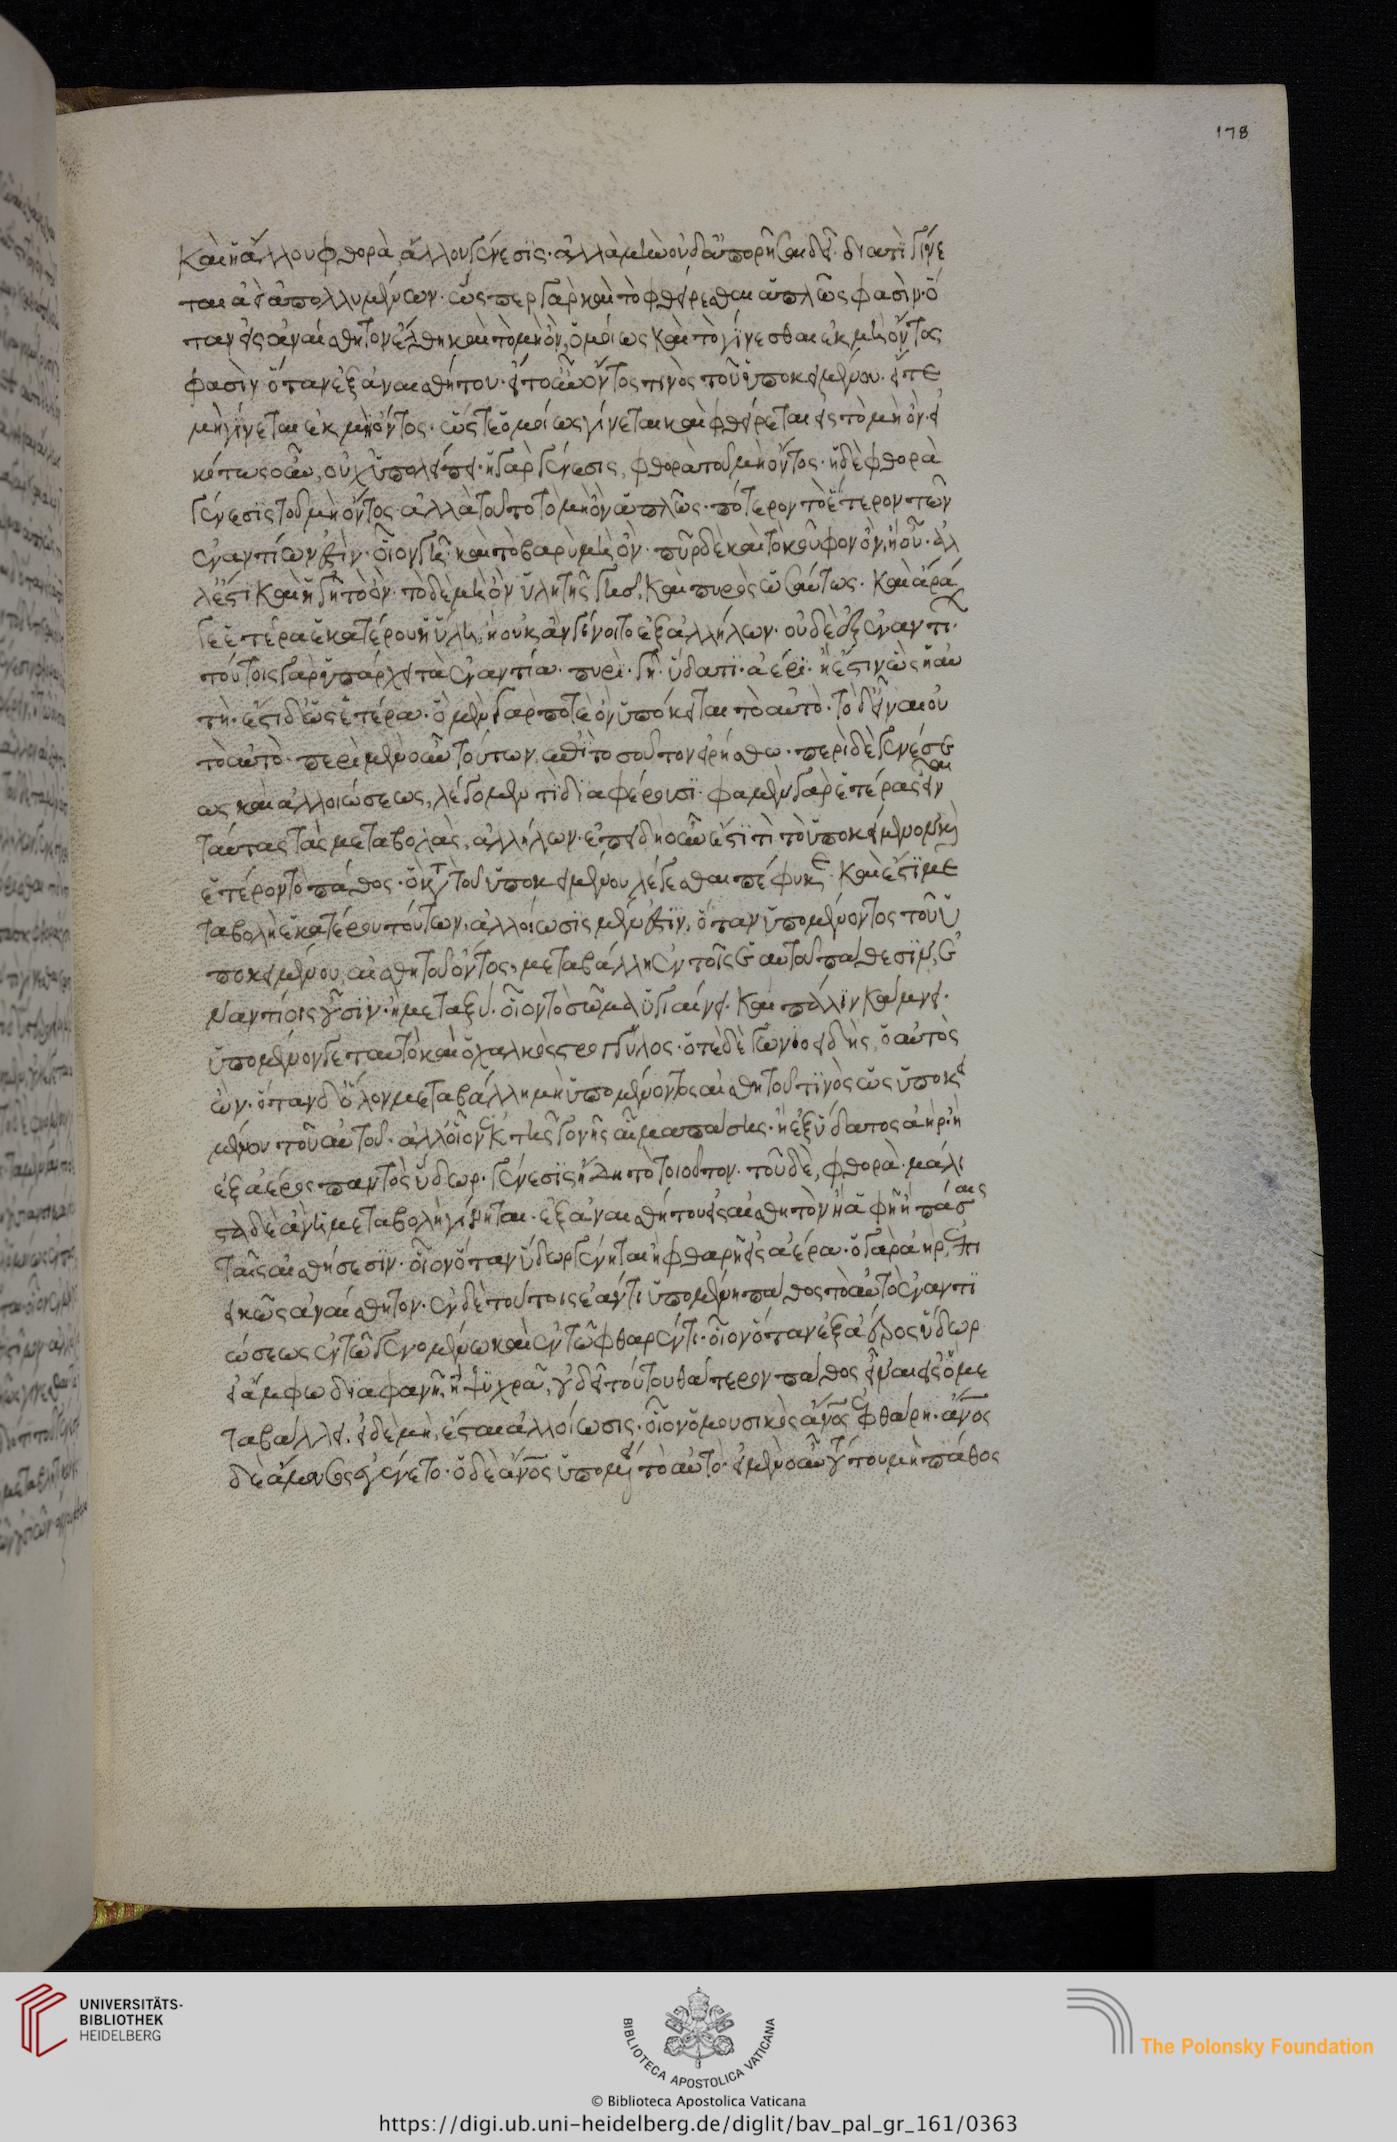 καὶ ἡ ἄλλου φθορὰ, ἄλλου γένεσϊς· ἀλλὰ μὴν οὐδ' ἀπορῆσαι δεῖ· διατὶ γίνε
ται ἀεὶ ἀπολλυμένων· ὥσπερ γὰρ καὶ τὸ φθείρεσθαι ἁπλῶς φασὶν· ὅ
ταν εἰς ἀναίσθητον ἔλθη καὶ τὸ μὴ ὂν, ὁμοίως καὶ τὸ γίνεσθαι ἐκ μὴ ὄντος
φασὶν ὅταν ἐξ ἀναισθήτου· εἴτ' οὖν ὄντος τινὸς τοῦ ὑποκειμένου· εἴτε
μὴ γίνεται ἐκ μὴ ὄντος· ὥστε ὁμοίως γίνεται καὶ φθείρεται εἰς τὸ μὴ ὂν· εἰ
κότως οὖν, οὐχ ὑπολείπει· ἡ γὰρ γένεσις, φθορὰ τοῦ μὴ ὄντος· ἡ δὲ φθορὰ
γένεσϊς τοῦ μὴ ὄντος· ἀλλὰ τοῦτο τὸ μὴ ὂν ἁπλῶς· πότερον τὸ ἕτερον τῶν
ἐναντίων ἐστὶν· οἷον γῆ· καὶ τὸ βαρὺ μὴ ὂν· πῦρ δὲ καὶ τὸ κοῦφον ὂν, ἢ οὔ· ἀλ
λ' ἔστι καὶ ἡ γῆ τὸ ὂν· τὸ δὲ μὴ ὂν ὕλη τῆς γῆς, καὶ πυρὸς ὡσαύτως· καὶ ἆρά
γε ἑτέρα ἑκατέρου ἡ ὕλη, ἢ οὐκ ἂν γένοιτο ἐξ ἀλλήλων· οὐδ' ἐξ ἐναντι·
τούτοις γὰρ ὑπάρχει τὰ ἐναντία· πυρὶ· γῆ· ὕδατι· ἀέρι· ἢ ἔστιν ὡς ἡ αὐ
τὴ· ἔστι δ' ὡς ἑτέρα· ὃ μὲν γὰρ ποτε ὂν ὑπόκειται τὸ αὐτὸ· τὸ δ' εἶναι οὐ
τὸ αὐτὸ· περὶ μὲν οὖν τούτων, ἐπὶ τοσοῦτον εἰρήσθω· περὶ δὲ γενέσε
ως καὶ ἀλλοιώσεως, λέγομεν τί διαφέρουσι· φαμὲν γὰρ ἑτέρας εἶναι
ταύτας τὰς μεταβολὰς, ἀλλήλων· ἐπειδὴ οὖν ἐστί τι τὸ ὑποκείμενον καὶ
ἕτερον τὸ πάθος· ὃ κατὰ τοῦ ὑποκειμένου λέγεσθαι πέφυκε· καὶ ἔστι με
ταβολὴ ἑκατέρου τούτων, ἀλλοίωσϊς μέν ἐστιν, ὅταν ὑπομένοντος τοῦ ὑ
ποκειμένου, αἰσθητοῦ ὄντος, μεταβάλλη ἐν τοῖς ἑαυτοῦ πάθεσϊν, ἐ
ναντίοις οὖσιν· ἢ μεταξύ· οἷον τὸ σῶμα ὑγιαίνει· καὶ πάλϊν κάμνει·
ὑπομένον γε ταυτὸ· καὶ ὁ χαλκὸς στρογγύλος· ὁτὲ δὲ γωνιοειδὴς, ὁ αὐτὸς
ὢν· ὅταν δ' ὅλον μεταβάλλη μὴ ὑπομένοντος αἰσθητοῦ τινὸς ὡς ὑποκει
μένου τοῦ αὐτοῦ· ἀλλ' οἷον ἐκ τῆς γονῆς αἷμα πάσης· ἢ ἐξ ὕδατος ἀὴρ· ἢ
ἐξ ἀέρος παντὸς ὕδωρ· γένεσϊς ἤδη τὸ τοιοῦτον· τοῦ δὲ, φθορὰ· μάλι
στα δὲ ἂν ἡ μεταβολὴ γίνηται· ἐξ ἀναισθήτου εἰς αἰσθητὸν ἢ ἁφῆ ἢ πάσαις
ταῖς αἰσθήσεσϊν· οἷον ὅταν ὕδωρ γένηται ἢ φθαρῆ εἰς ἀέρα· ὁ γὰρ ἀὴρ, ἐπι
εικῶς ἀναίσθητον· ἐν δὲ τούτοις ἐάν τι ὑπομένη πάθος τὸ αὐτὸ ἐναντι
ώσεως ἐν τῶ γενομένω καὶ ἐν τῶ φθαρέντι· οἷον ὅταν ἐξ ἀέρος ὕδωρ
εἰ ἄμφω διαφανῆ, ἢ ψυχρὰ, οὐ δεῖ τούτου θάτερον πάθος εἶναι εἰς ὃ με
ταβάλλει· εἰ δὲ μὴ, ἔσται ἀλλοίωσις· οἷον ὁ μουσικὸς ἄνος ἐφθάρη· ἄνος
δὲ ἄμουσος ἐγένετο· ὁ δὲ ἄνος ὑπομένει τὸ αὐτὸ· εἰ μὲν οὖν τούτου μὴ πάθος
178
UNIVERSITÄTS-
BIBLIOTHEK
HEIDELBERG
BIBLIOTECA APOSTOLICA VATICANA
The Polonsky Foundation
© Biblioteca Apostolica Vaticana
https://digi.ub.uni-heidelberg.de/diglit/bav_pal_gr_161/0363